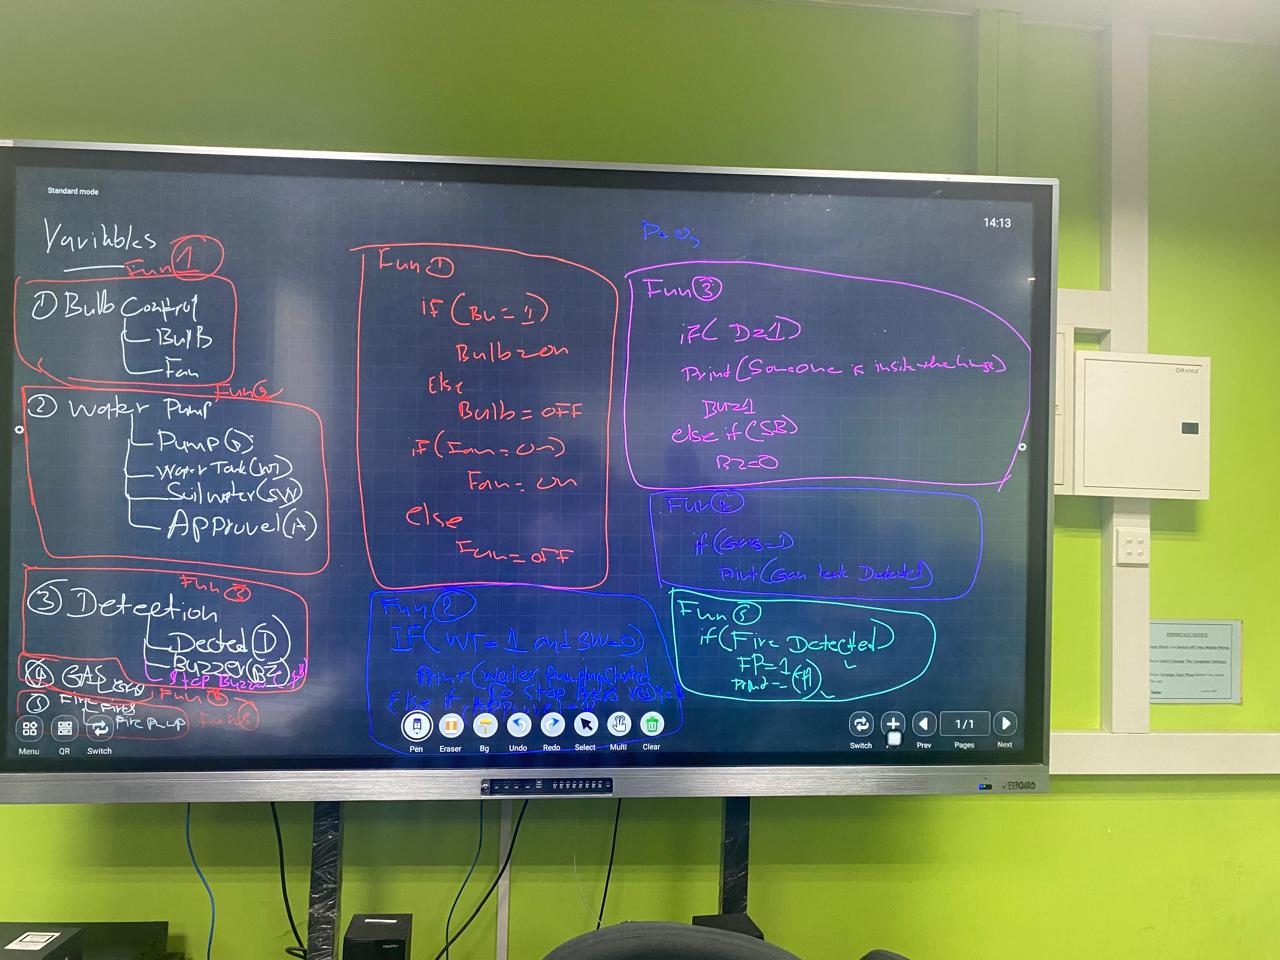 Standard mode
14:13
Varibbles
Fun 1
① Bulb Control
BulB
Fan
Fun 2
② Water Pump
Pump(P)
Water Tank(WT)
Soil water(SW)
Approvel(A)
Fun ③
③ Detection
Dected(D)
Buzzer(BZ)
Stop Buzzer
④ GAS
Fun 4
⑤ Fire
Fire Pump
Fun 5
Fun ①
if (Bu = 1)
Bulb = on
Else
Bulb = OFF
if (Fan = on)
Fan = on
else
Fun = OFF
Fun ②
IF (WT = 1 and SW = 0)
Print (Water Pumping Started
Else if
Fun ③
if( D=1)
Print (Someone is inside the
BU=1
else if (SB)
BZ=0
Fun ④
if (Gas=1)
Print (Gan leak Detected)
Fun ⑤
if (Fire Detected)
FP=1
Print
Menu
QR
Switch
Pen
Eraser
Bg
Undo
Redo
Select
Multi
Clear
Switch
Prev
1/1
Pages
Next
ELBOARD
ORANGE
IMPORTANT NOTICE